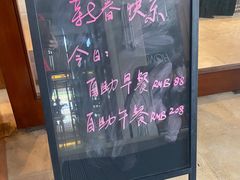 新春快乐
今日:
自助早餐 RMB 88
自助午餐 RMB 208